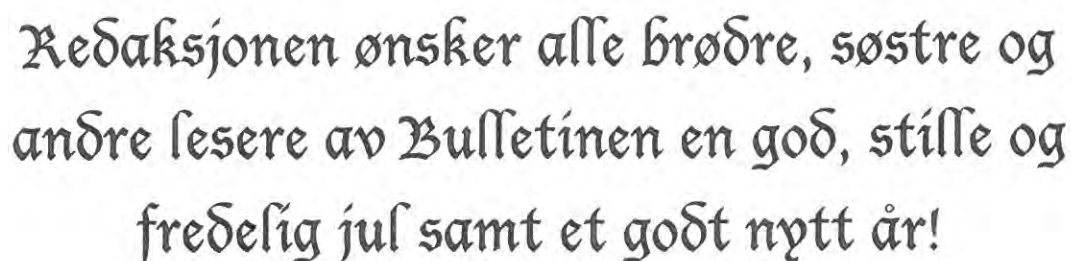 Redaksjonen ønsker alle brødre, søstre og
andre lesere av Bulletinen en god, stille og
fredelig jul samt et godt nytt år!